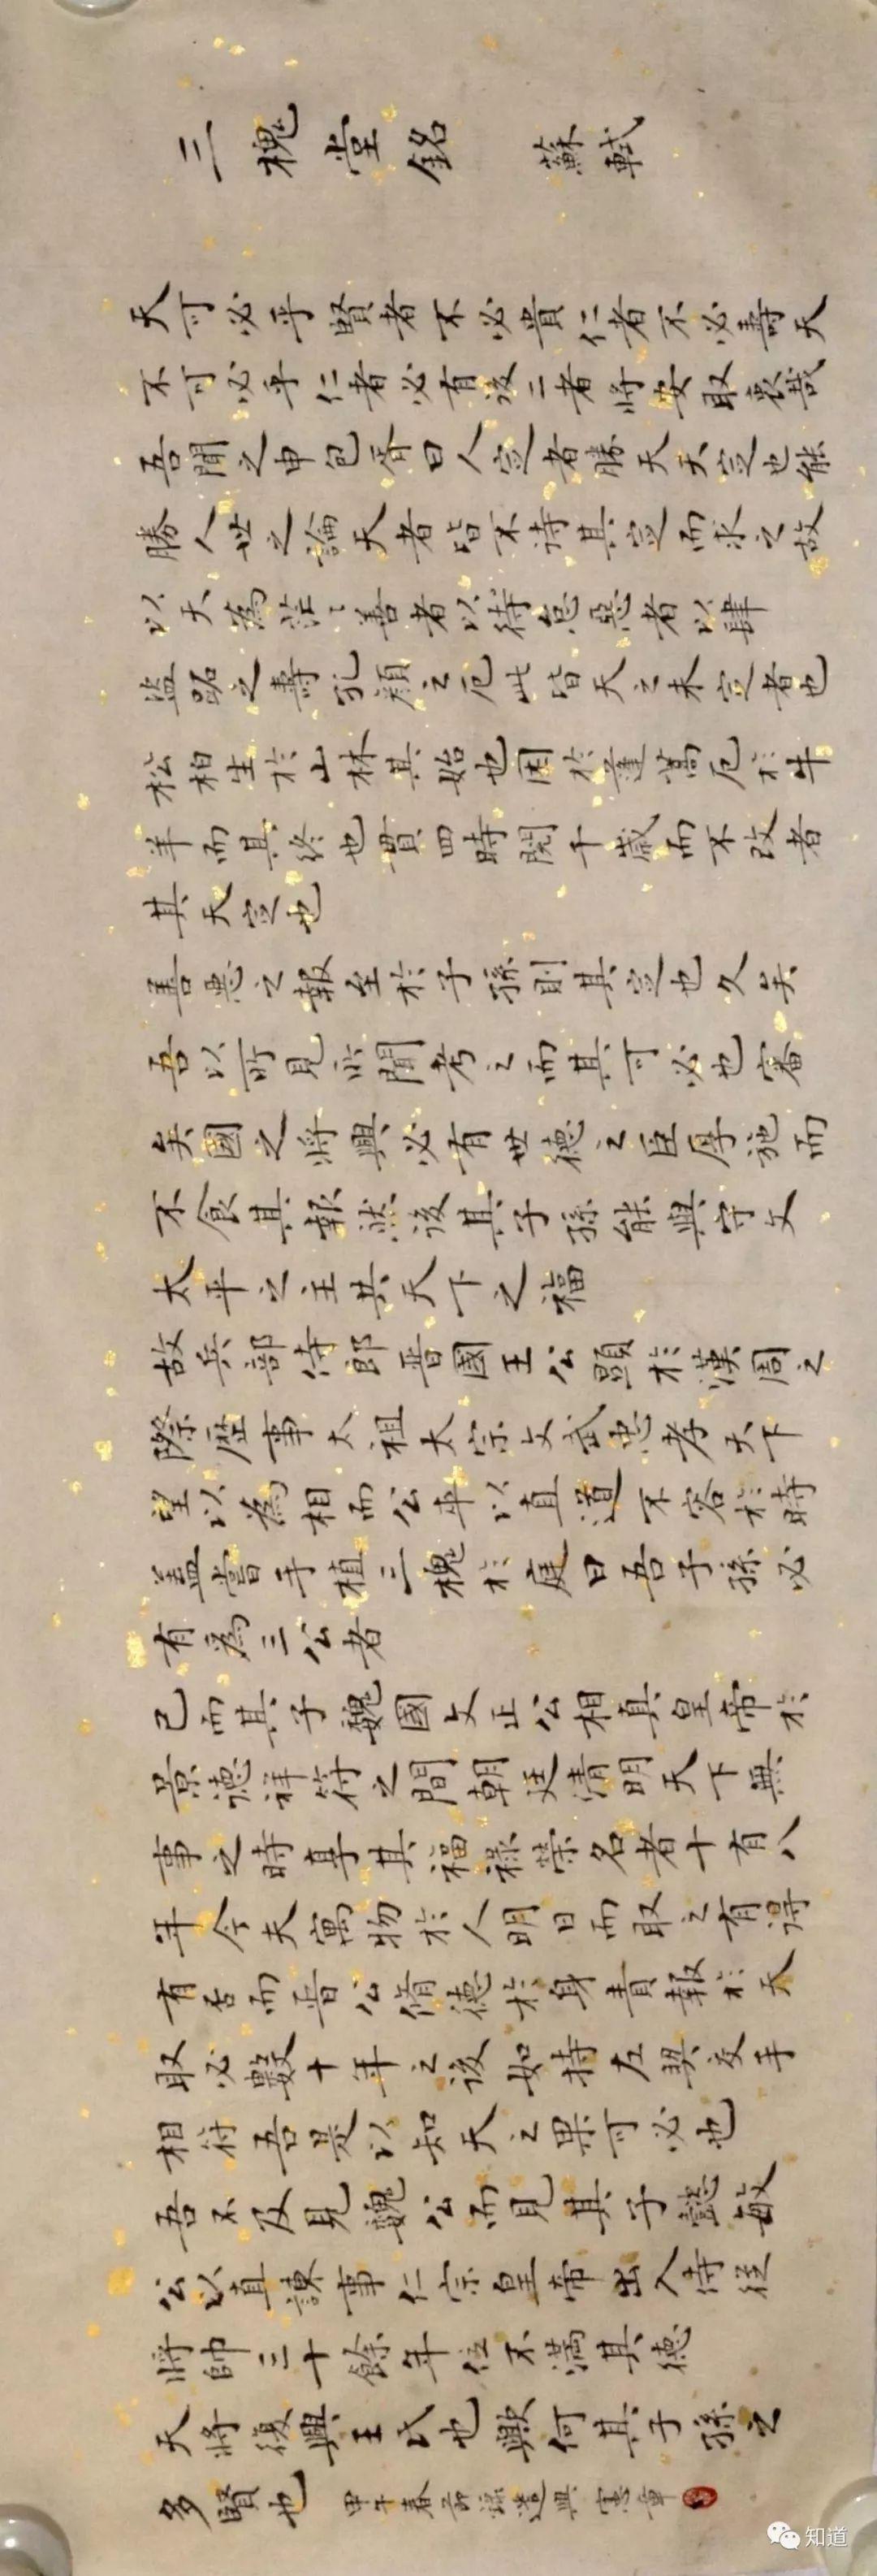 三槐堂銘 蘇軾
天可必乎賢者不必貴仁者不必壽天
不可必乎仁者必有後二者將安取衷哉
吾聞之申包胥曰人定者勝天天定也能
勝人世之論天者皆不待其定而求之故
以天為茫〻善者以待怠惡者以肆
盜跖之壽孔顏之厄此皆天之未定者也
松柏生於山林其始也困於蓬蒿厄於牛
羊而其終也貫四時閱千歲而不改者
其天定也
善惡之報至於子孫則其定也久矣
吾以所見所聞考之而其可必也審
矣國之將興必有世德之臣厚施而
不食其報然後其子孫能與守文
太平之主共天下之福
故兵部侍郎晉國王公顯於漢周之
際歷事太祖太宗文武忠孝天下
望以為相而公卒以直道不容於時
蓋嘗手植三槐於庭曰吾子孫必
有為三公者
已而其子魏國文正公相真皇帝於
景德祥符之間朝廷清明天下無
事之時享其福祿榮名者十有八
年今夫寓物於人明日而取之有得
有否而晉公脩德於身責報於天
取必數十年之後如持左契交手
相符吾是以知天之果可必也
吾不及見魏公而見其子懿敏
公以直諫事仁宗皇帝出入侍從
將帥三十餘年位不滿其德
天將復興王氏也歟何其子孫之
多賢也 甲午春 孫道興
知道